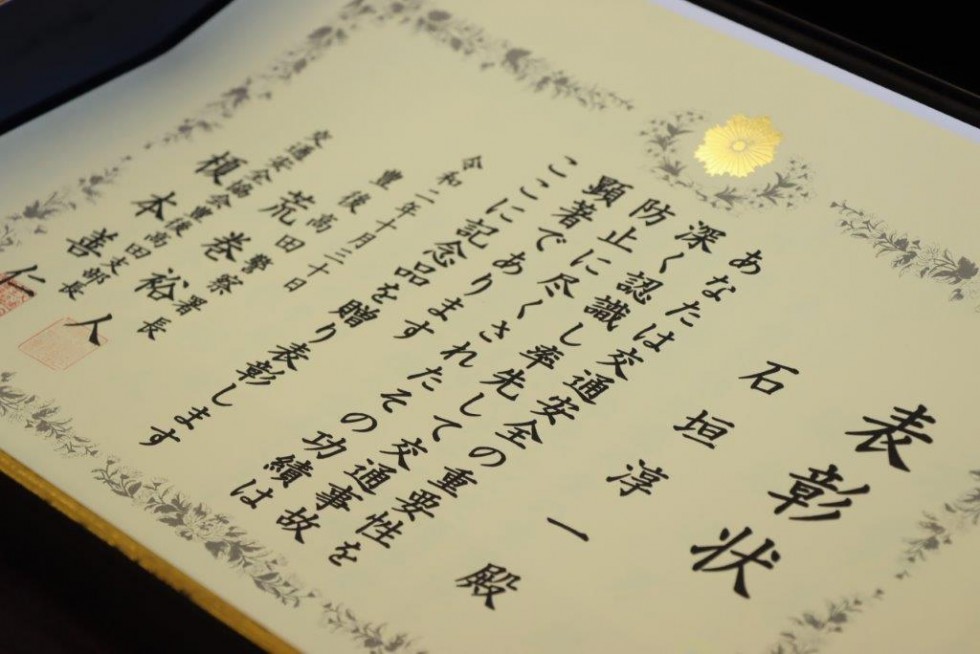 表彰状
石垣淳一殿
あなたは交通安全の重要性を
深く認識し率先して交通事故
防止に尽くされたその功績は
顕著であります
ここに記念品を贈り表彰します
令和二年十月三十日
豊後高田警察署長
荒巻裕人
交通安全協会豊後高田支部長
榎本善仁